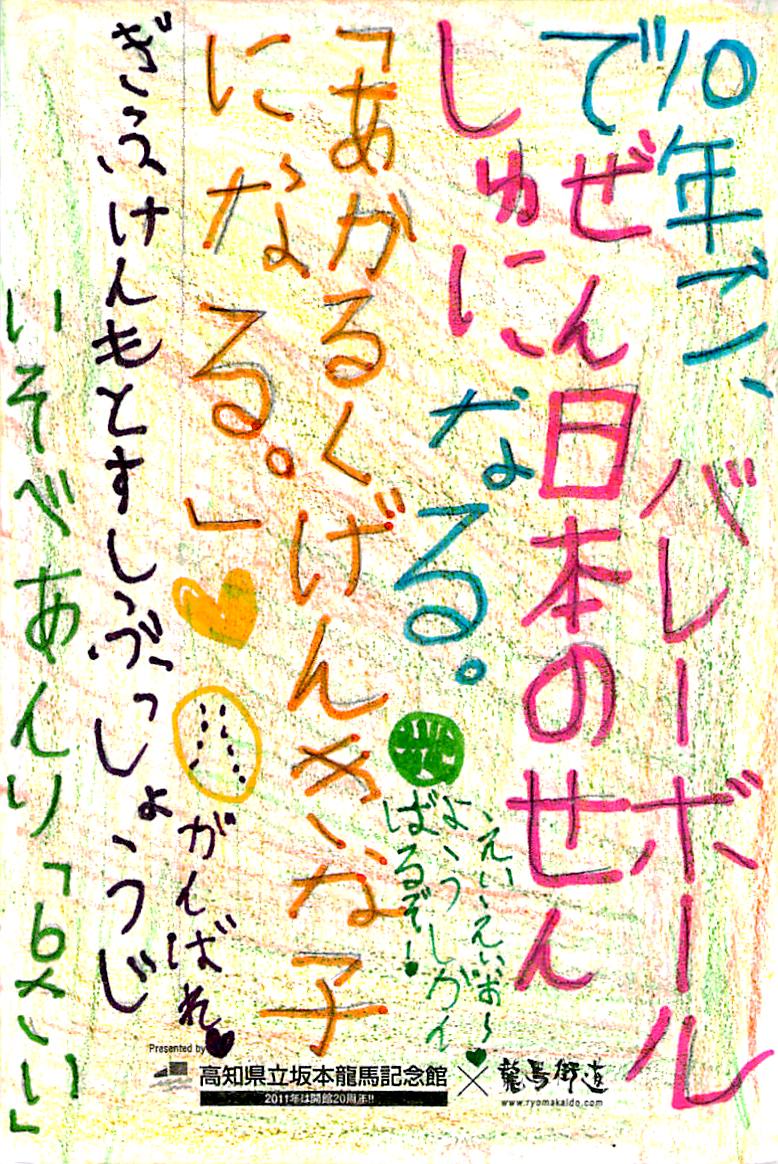 10年ご、バレーボール
でぜん日本のせん
しゅになる。
えいえいお〜
ようしがん
ばるぞー!
「あかるくげんきな子
になる。」
がんばれ
ぎふけんもとすしぶっしょうじ
いそべあんり「6さい」
Presented by
高知県立坂本龍馬記念館
2011年は開館20周年!!
×
龍馬街道
www.ryomakaido.com